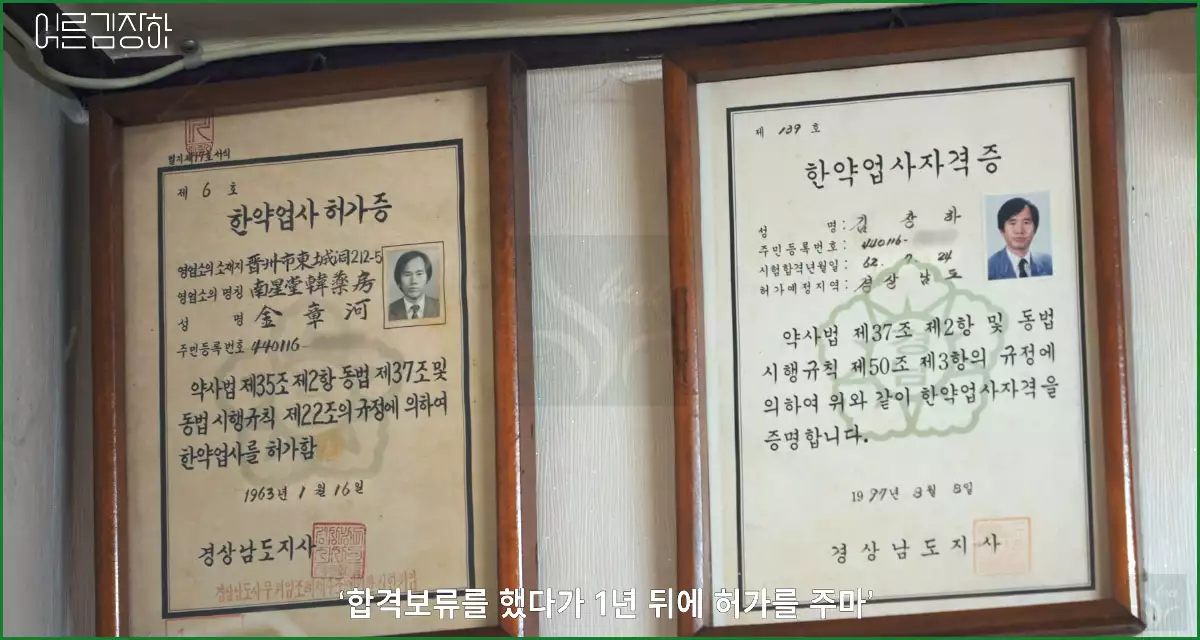 어른김장하
별지 제17호 서식
제 6 호
한약업사 허가증
영업소의 소재지 晋州市東城洞212-5
영업소의 명칭 南星堂韓藥房
성 명 金章河
주민등록번호 440116-
약사법 제35조 제2항 동법 제37조 및
동법 시행규칙 제22조의 규정에 의하여
한약업사를 허가함
1963년 1월 16일
경상남도지사
제 139 호
한약업사자격증
성 명: 김장하
주민등록번호: 440116-
시험합격년월일: 62. 7. 24
허가예정지역: 경상남도
약사법 제37조 제2항 및 동법
시행규칙 제50조 제3항의 규정에
의하여 위와 같이 한약업사자격을
증명합니다.
1997년 8월 8일
경상남도지사
‘합격보류를 했다가 1년 뒤에 허가를 주마’